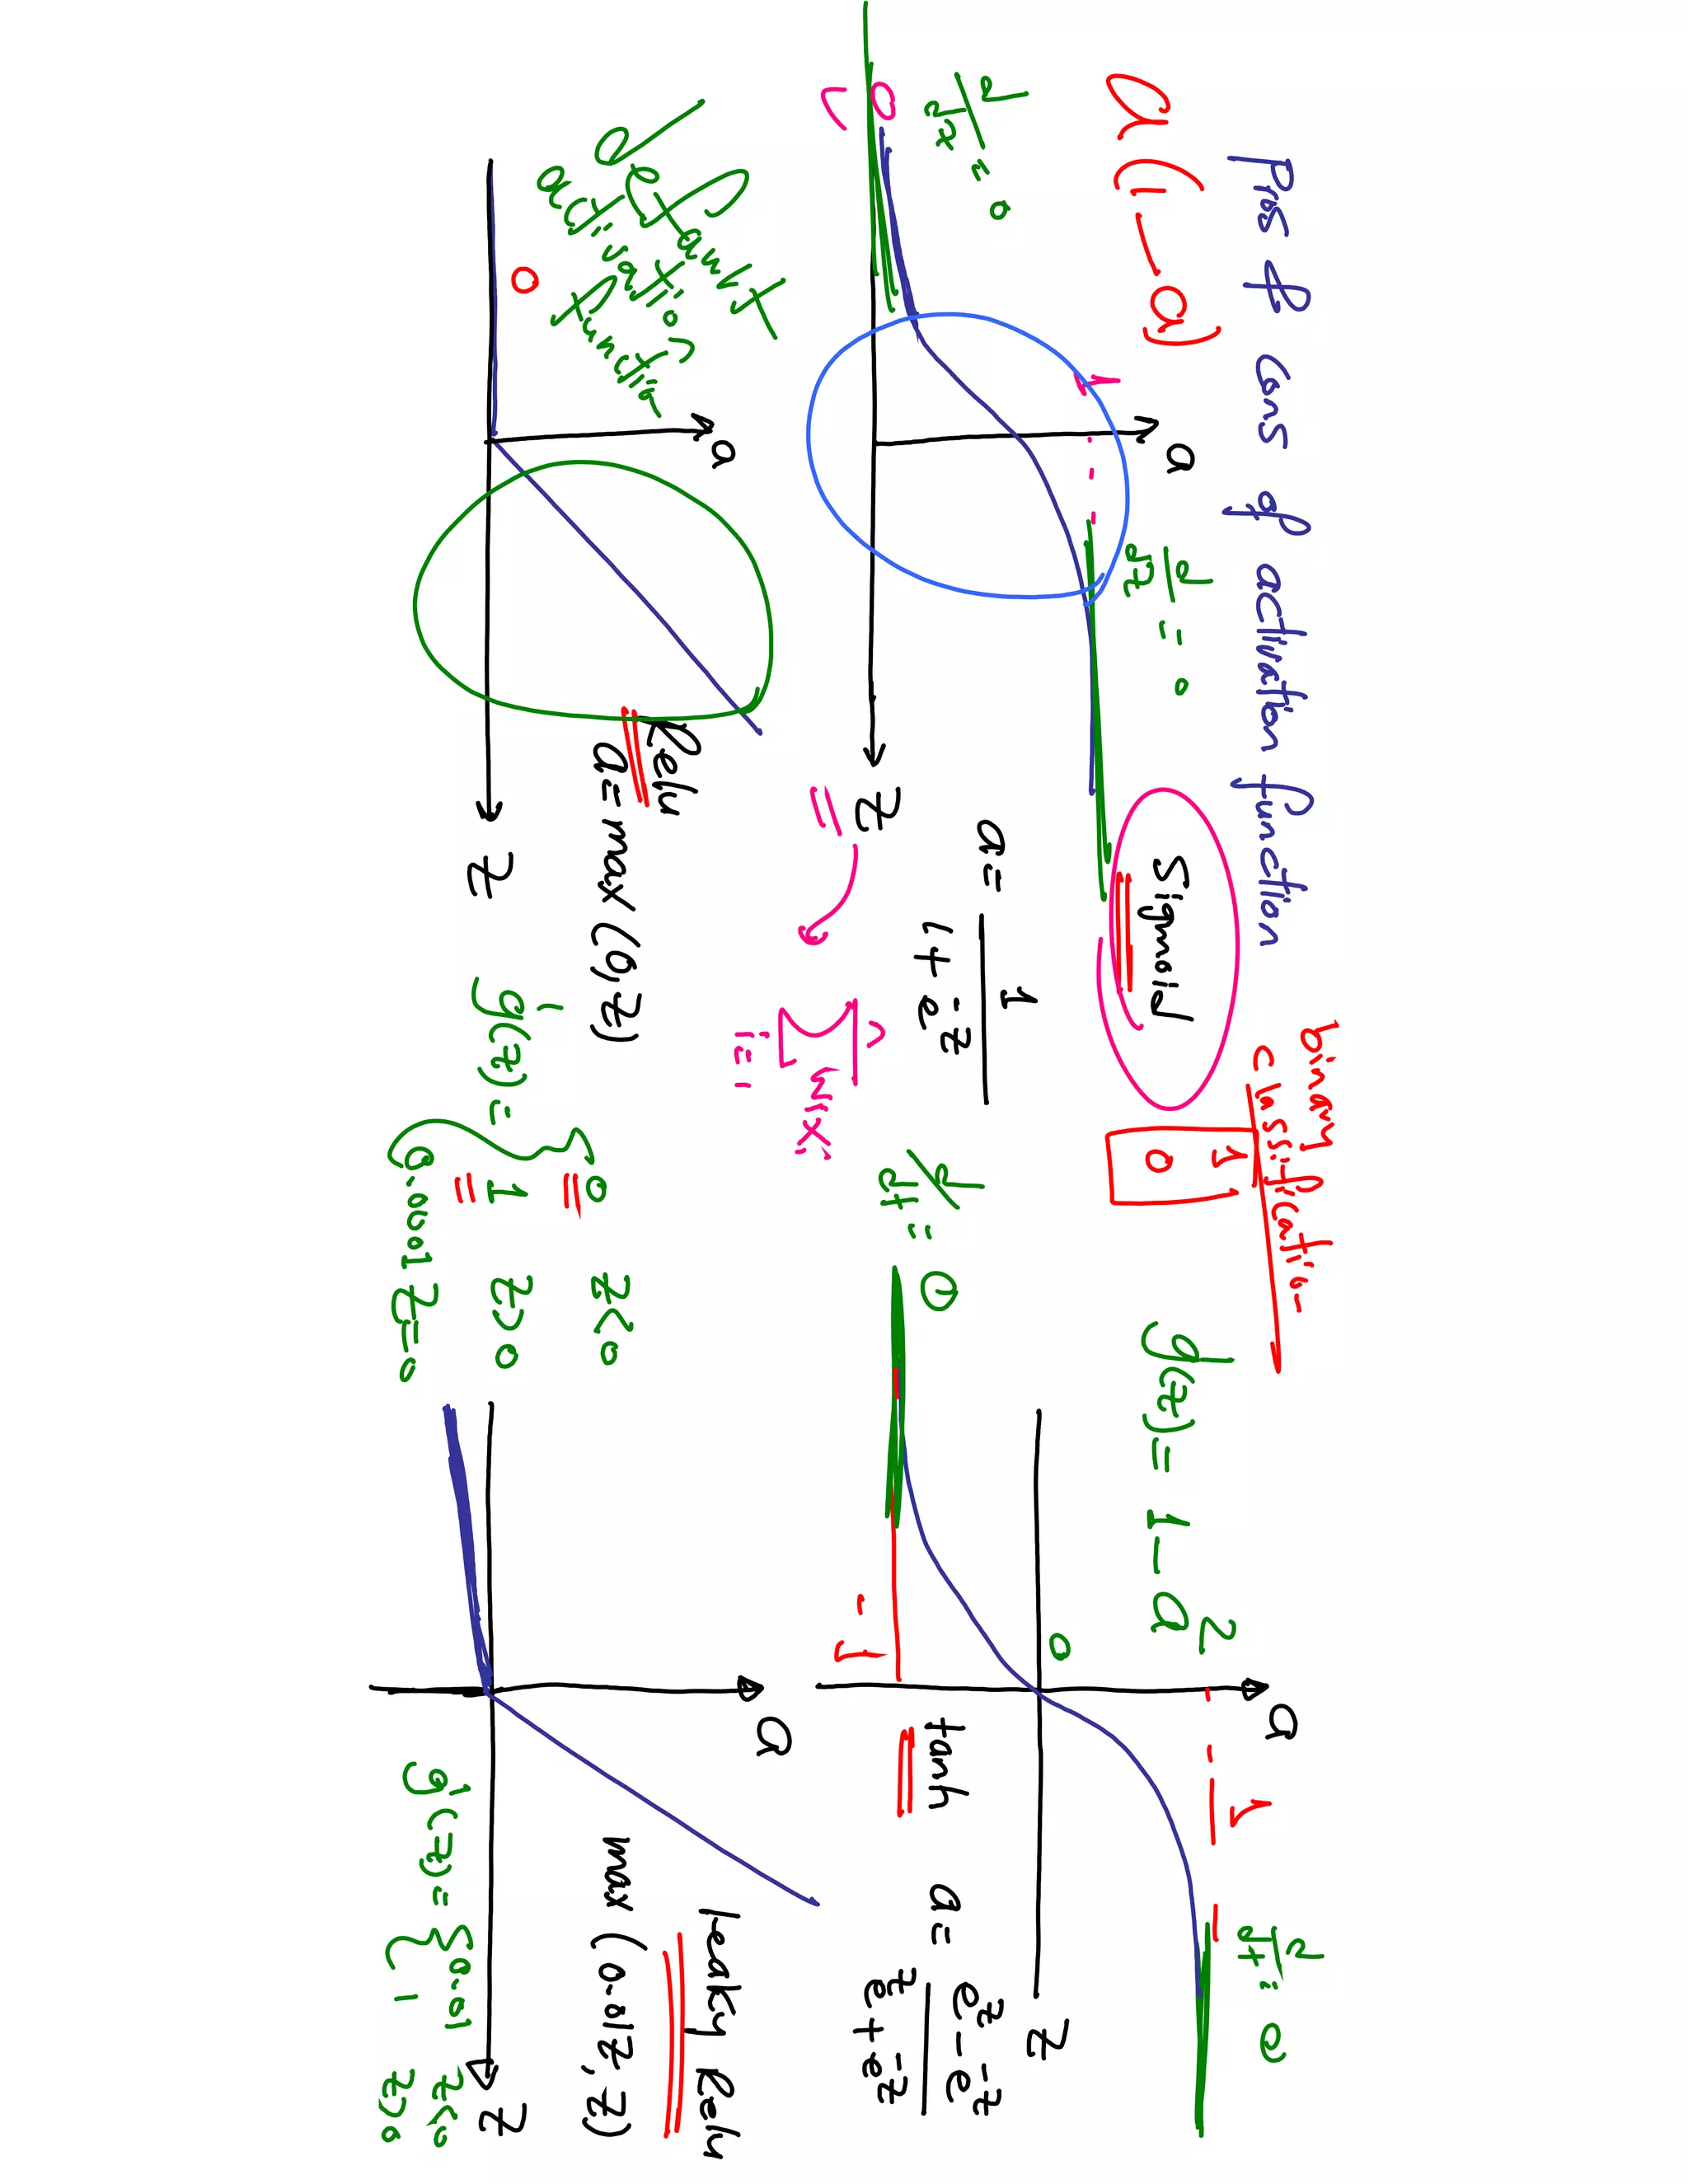 Pros & cons of activation function
a(1-a)
a
d/dz = 0
d/dz = 0
1
0
z
Sigmoid
binary
classification
1
0
a = 1 / 1 + e^-z
∑ wixi
i=1
g'(z) = 1 - a^2
a
1
0
-1
z
d/dt = 0
d/dt = 0
tanh
a = e^z - e^-z / e^z + e^-z
default
activation
function
0
a
z
Relu
a = max (0, z)
g'(z) = { 0 z<0
1 z>0
0.0001 z=0
a
z
leaky Relu
max (0.01z, z)
g'(z) = { 0.01 z<0
1 z>0